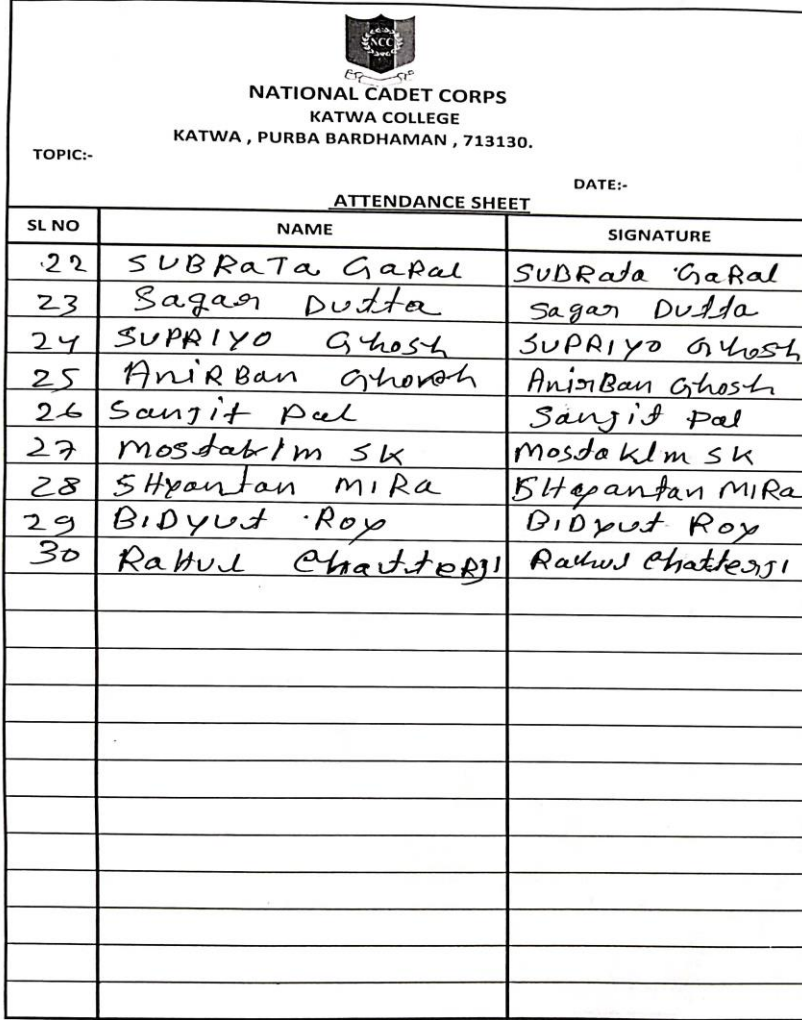 NCC
NATIONAL CADET CORPS
KATWA COLLEGE
KATWA , PURBA BARDHAMAN , 713130.
TOPIC:-
DATE:-
ATTENDANCE SHEET
SL NO NAME SIGNATURE
22 SUBRaTa GaRal SUBRata GaRal
23 Sagar Dutta Sagar Dutta
24 SUPRIYO Ghosh SUPRIYO Ghosh
25 AniRBan Ghosh AnirBan Ghosh
26 Sanjit Pal Sanjit Pal
27 Mostakim SK Mostakim SK
28 SHyantan MIRa SHayantan MIRa
29 BIDyut Roy BIDyut Roy
30 RaHul ChatteRJI Rahul ChatterJI